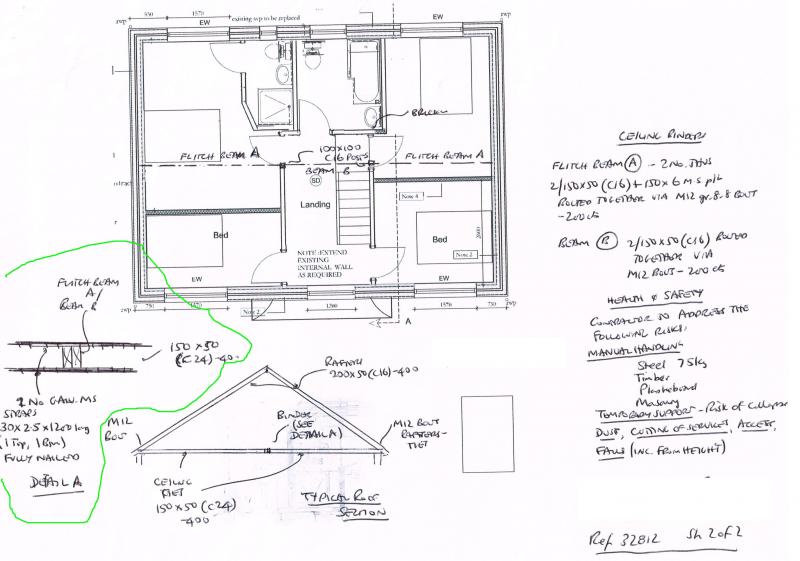 rwp
930
1570
existing svp to be replaced
EW
EW
rwp
BRICK
FLITCH BEAM A
100X100
C16 POSTS
BEAM B
FLITCH BEAM A
SD
Landing
Note 4
Bed
Bed
2000
Note 2
NOTE :EXTEND
EXISTING
INTERNAL WALL
AS REQUIRED
EW
EW
rwp
750
1570
Note 2
1200
A
1570
730
rwp
CEILING BINDERS
FLITCH BEAM (A) - 2 NO. THUS
2/150X50 (C16) + 150X6 M.S plt
BOLTED TOGETHER VIA M12 gr.8.8 BOLT
- 200 c/s
BEAM (B) 2/150X50 (C16) BOLTED
TOGETHER VIA
M12 BOLT - 200 c/s
HEALTH & SAFETY
CONTRACTOR TO ADDRESS THE
FOLLOWING RISKS:
MANUAL HANDLING
Steel 75kg
Timber
Plasterboard
Masonry
TEMPORARY SUPPORT - Risk of collapse
DUST, CUTTING OF SERVICES, ACCESS,
FALLS (INC. FROM HEIGHT)
Ref 32812 Sh 2 of 2
FLITCH BEAM
A /
BEAM B
150 X 50
(C24) - 400
2 NO GALV. MS
STRAPS
30 X 2.5 X 1200 long
(1 Top, 1 Btm)
FULLY NAILED
DETAIL A
RAFTERS
200X50 (C16) - 400
M12
BOLT
BINDER
(SEE
DETAIL A)
M12 BOLT
RAFTERS -
TIET
CEILING
TIET
150 X 50 (C24)
- 400
TYPICAL ROOF
SECTION